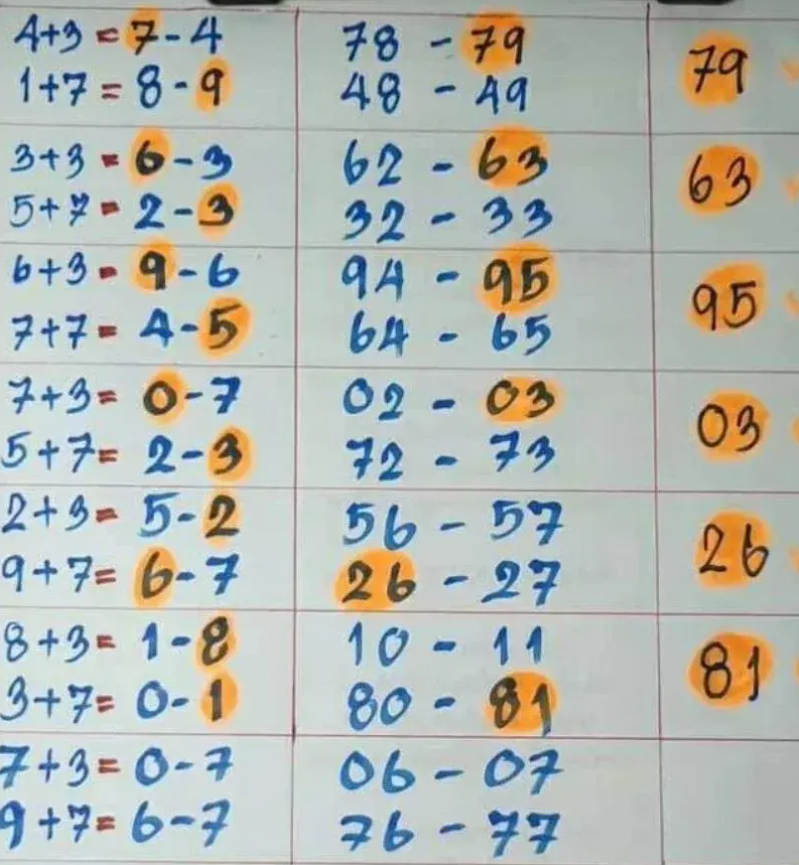 4+3 = 7-4 78 - 79 79
1+7 = 8-9 48 - 49
3+3 = 6-3 62 - 63 63
5+7 = 2-3 32 - 33
6+3 = 9-6 94 - 95 95
7+7 = 4-5 64 - 65
7+3 = 0-7 02 - 03 03
5+7 = 2-3 72 - 73
2+3 = 5-2 56 - 57 26
9+7 = 6-7 26 - 27
8+3 = 1-8 10 - 11 81
3+7 = 0-1 80 - 81
7+3 = 0-7 06 - 07
9+7 = 6-7 76 - 77